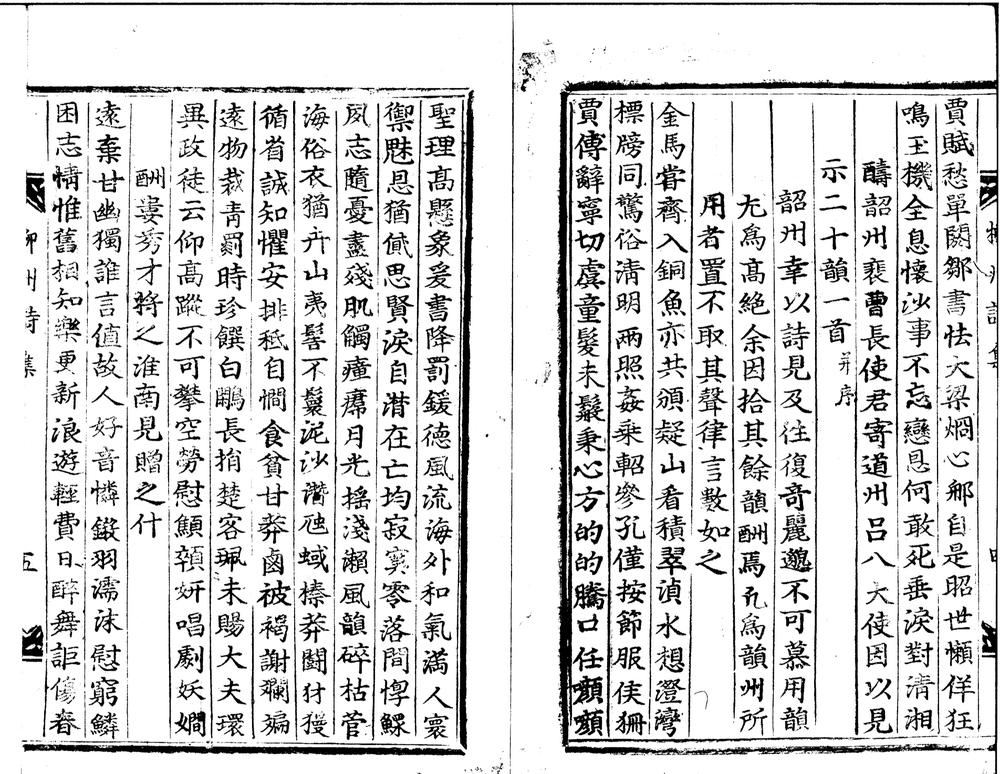 賈賦愁單閼鄒書怯大梁烱心那自是昭世懶佯狂
鳴玉機全息懷沙事不忘戀恩何敢死垂淚對清湘
醻韶州裴曹長使君寄道州吕八大使因以見
示二十韻一首并序
韶州幸以詩見及往復奇麗邈不可慕用韻
尤爲高絶余因拾其餘韻酬焉凡爲韻州所
用者置不取其聲律言數如之
金馬嘗齊入銅魚亦共頒疑山看積翠湞水想澄灣
標牓同驚俗淸明兩照姦乘軺參孔僅按節服侯狦
賈傅辭寧切虞童髮未鬖秉心方的的騰口任顡顡
聖理高懸象爰書降罰鍰德風流海外和氣滿人寰
禦魅恩猶貸思賢淚自潸在亡均寂寞零落間惸鰥
夙志隨憂盡殘肌觸瘴㿏月光摇淺瀨風韻碎枯菅
海俗衣猶卉山夷髻不鬟泥沙潛虺蜮榛莽鬪豺獌
循省誠知懼安排秪自憪食貧甘莽鹵被褐謝斕斒
遠物裁青罽時珍饌白鷳長捐楚客珮未賜大夫環
異政徒云仰高蹤不可攀空勞慰顦顇妍唱劇妖嫺
酬婁秀才將之淮南見贈之什
遠棄甘幽獨誰言值故人好音憐鎩羽濡沫慰窮鱗
困志情惟舊相知樂更新浪遊輕費日醉舞詎傷春
柳州詩集
五